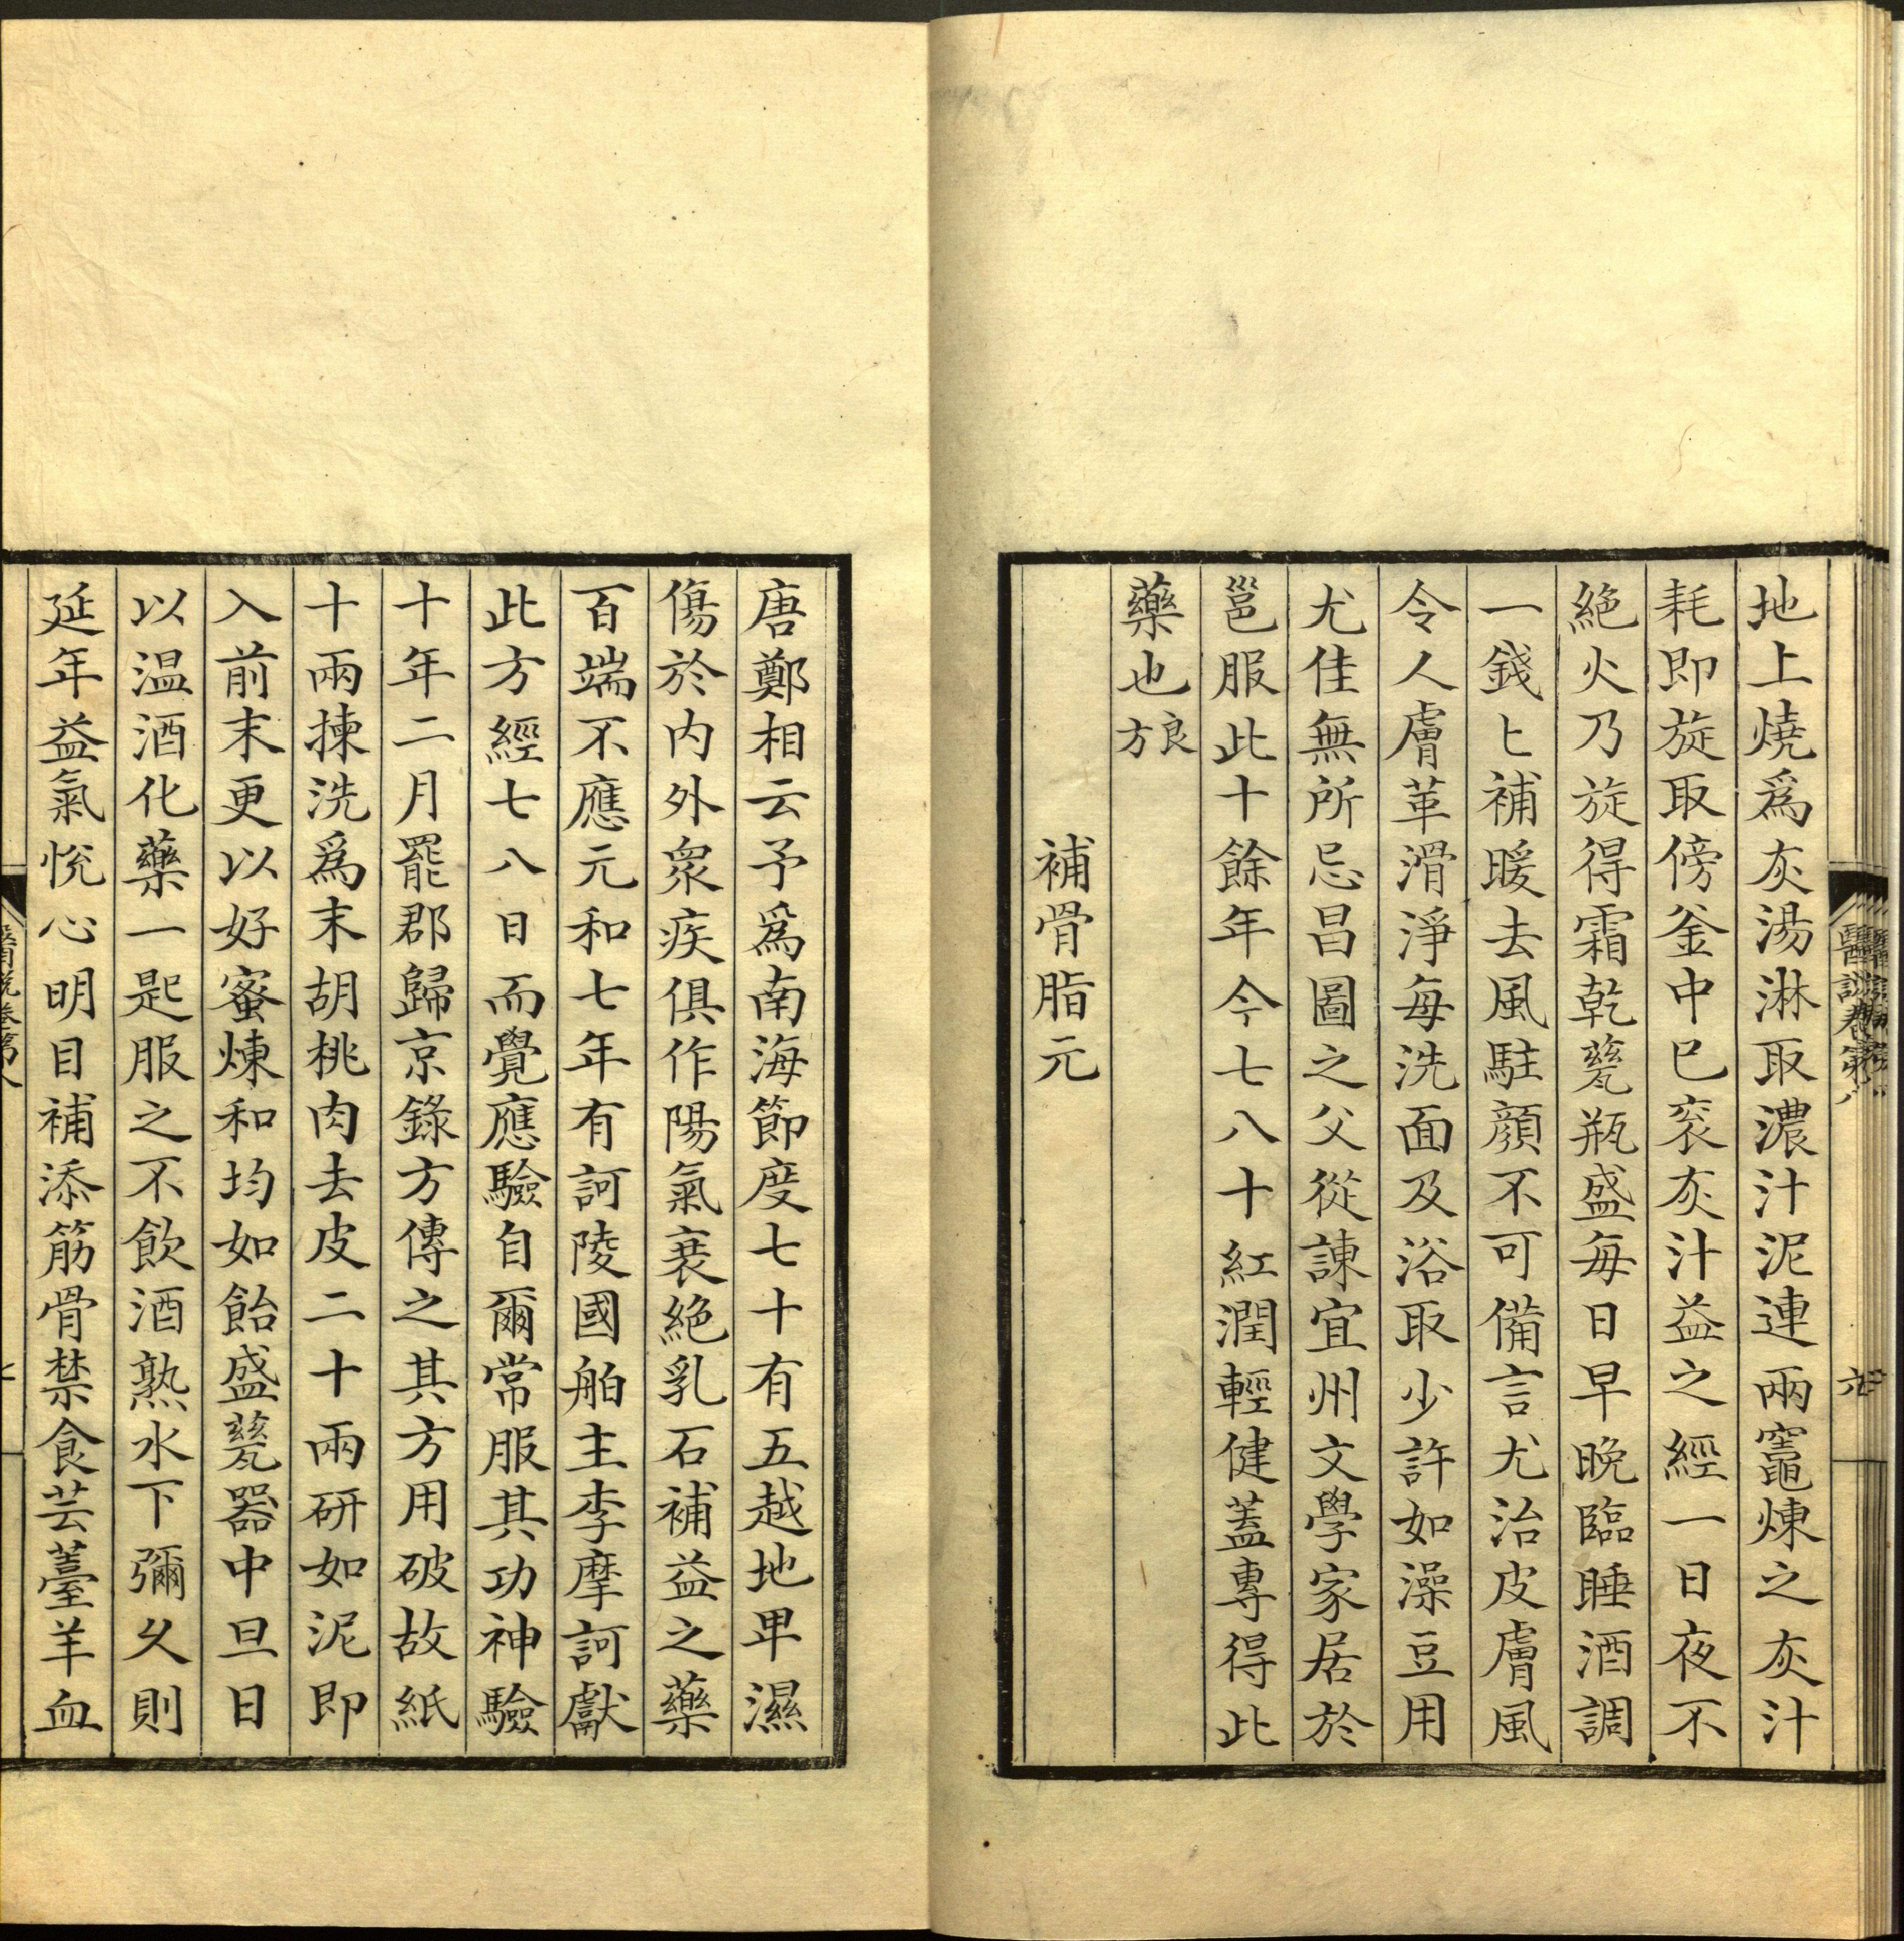 地上燒爲灰湯淋取濃汁泥連兩竈煉之灰汁
耗即旋取傍釜中巳衮灰汁益之經一日夜不
絶火乃旋得霜乾甆瓶盛每日早晩臨睡酒調
一錢匕補暖去風駐顔不可備言尤治皮膚風
令人膚革滑淨每洗面及浴取少許如澡豆用
尤佳無所忌昌圖之父從諫宜州文學家居於
邕服此十餘年今七八十紅潤輕健蓋專得此
藥也良方
補骨脂元
唐鄭相云予爲南海節度七十有五越地卑濕
傷於内外衆疾俱作陽氣衰絶乳石補益之藥
百端不應元和七年有訶陵國舶主李摩訶獻
此方經七八日而覺應驗自爾常服其功神驗
十年二月罷郡歸京錄方傳之其方用破故紙
十兩揀洗爲末胡桃肉去皮二十兩研如泥即
入前末更以好蜜煉和均如飴盛甆器中旦日
以温酒化藥一匙服之不飲酒熟水下彌久則
延年益氣悦心明目補添筋骨禁食芸薹羊血